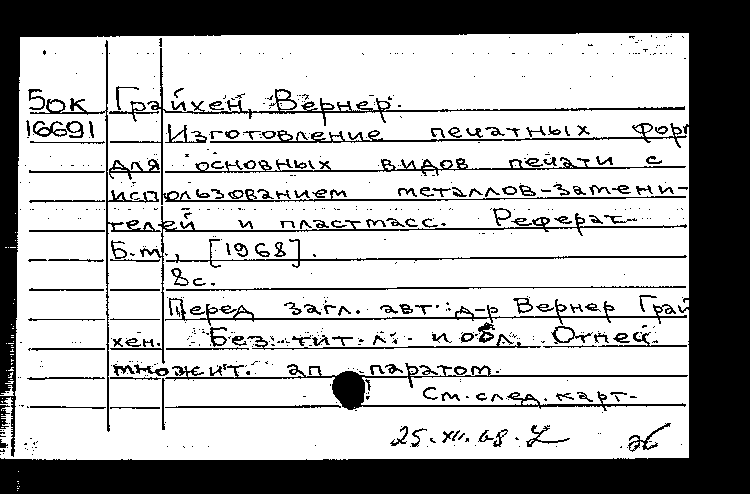 5ок Грайхен, Вернер.
16691 Изготовление печатных фор
для основных видов печати с
использованием металлов-замени-
телей и пластмасс. Реферат-
Б.м., [1968].
8с.
Перед загл. авт.: д-р Вернер Грай
хен. Без тит. л. и обл. Отпеч.
множит. ап паратом.
См. след. карт-
25.XII.68.